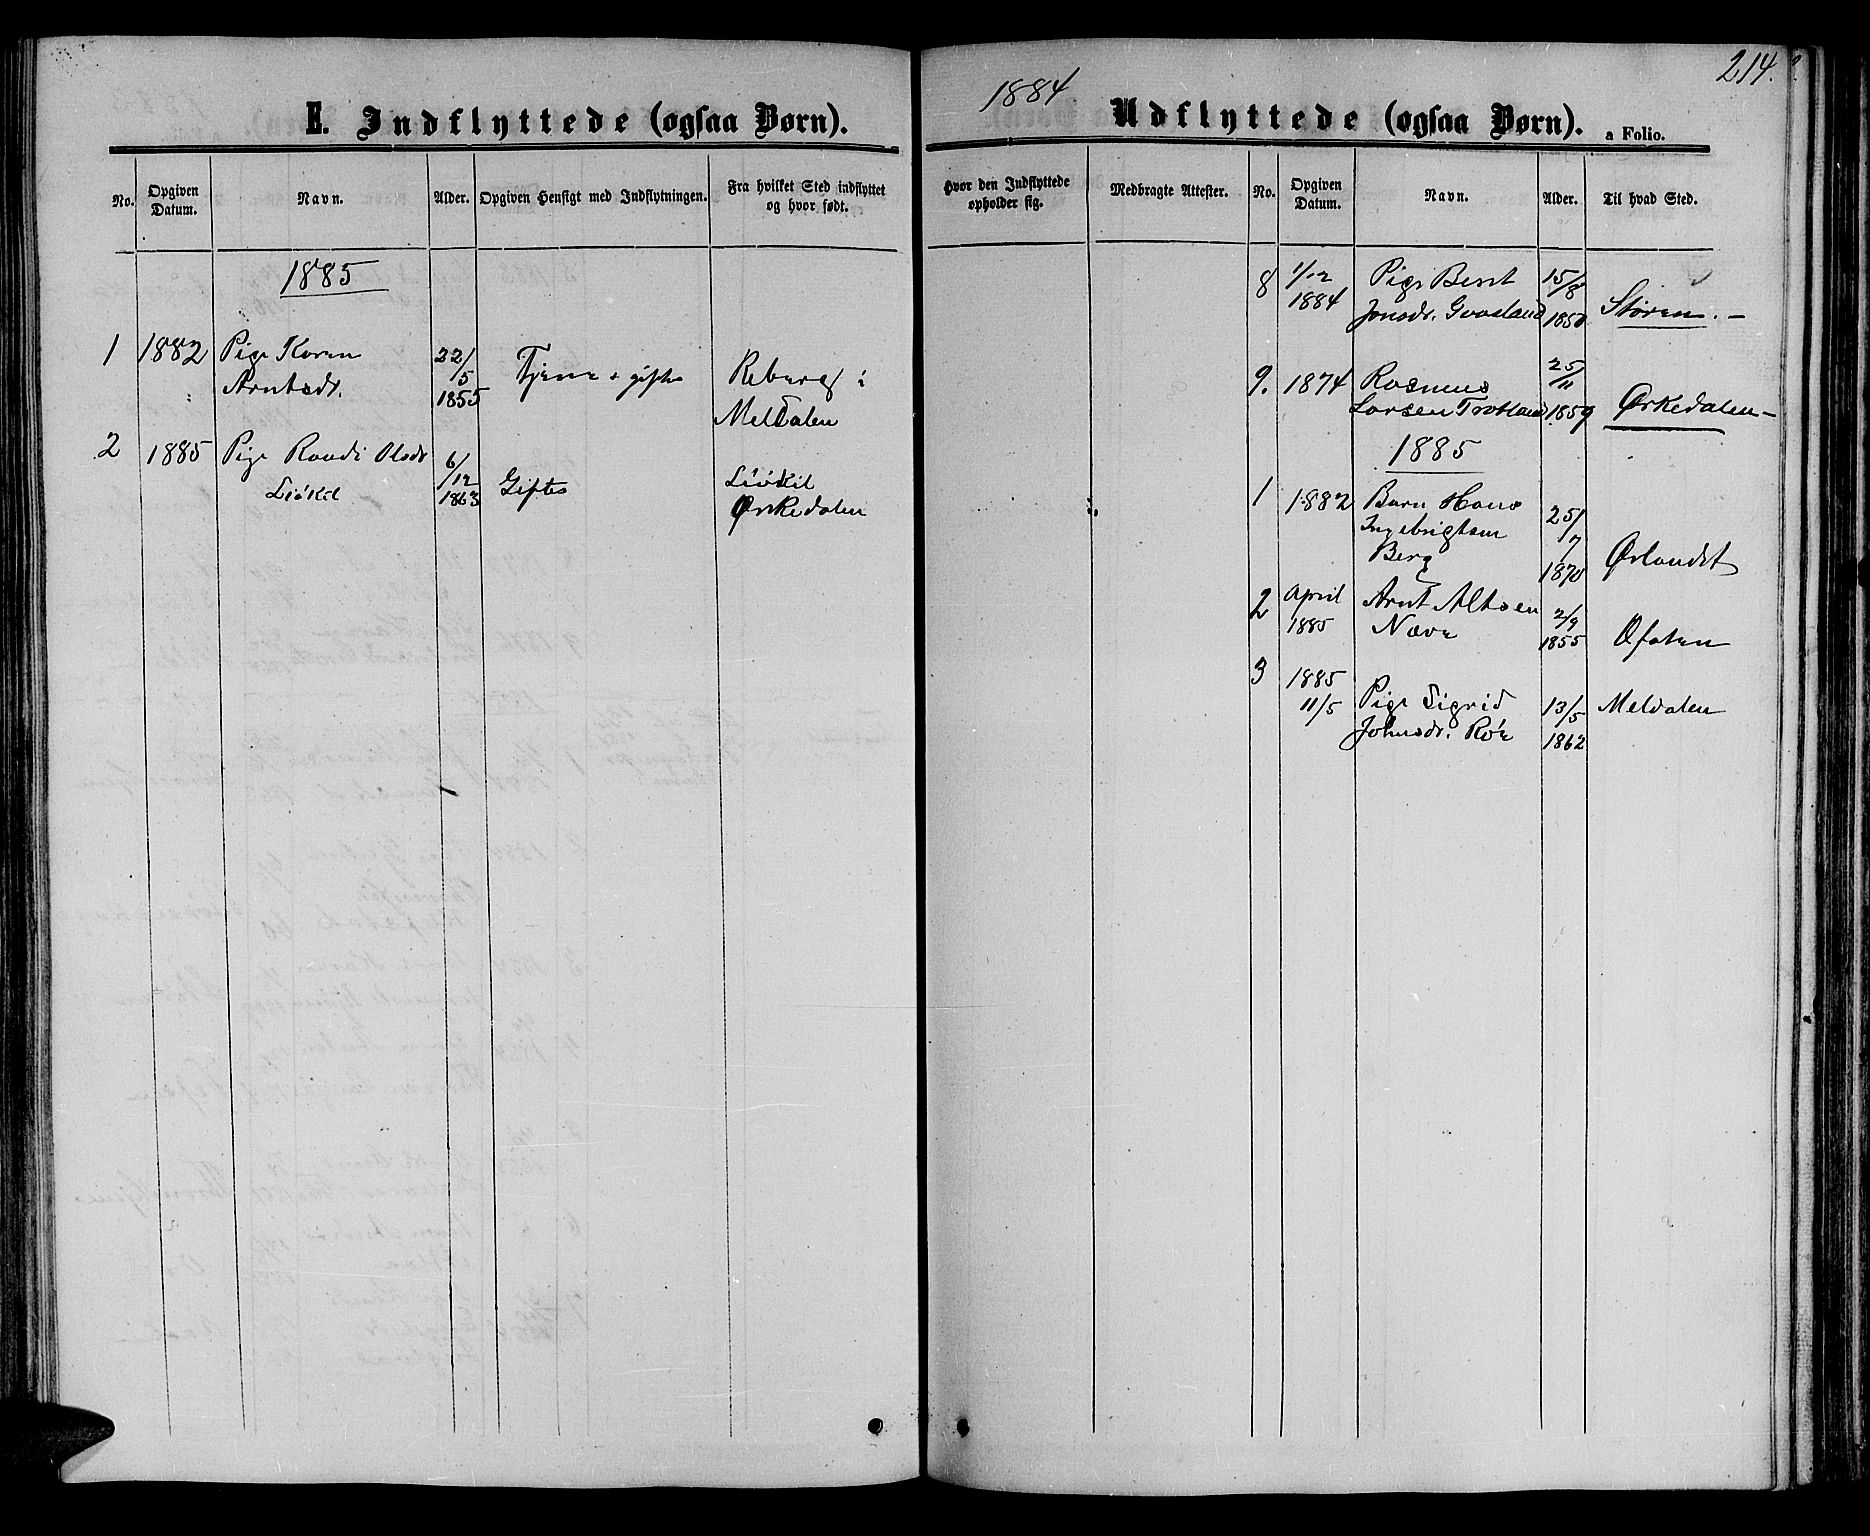 E. Indflyttede (ogsaa Børn).
No.
Opgiven Datum.
Navn.
Alder.
Opgiven Hensigt med Indflytningen.
Fra hvilket Sted indflyttet og hvor født.
1885
1 1882 Pige Karen 22/5 Tjene + giftes Reberg i
Arntsdr. 1855 Meldalen
2 1885 Pige Randi Olsdr 6/12 Giftes Liökil
Liökil 1863 Ørkedalen
1884
214.
Udflyttede (ogsaa Børn). a Folio.
Hvor den Indflyttede opholder sig.
Medbragte Attester.
No.
Opgiven Datum.
Navn.
Alder.
Til hvad Sted.
8 1/12 Pige Berit 15/8
1884 Jonsdr. 1850 Støren.-
9. 1874 Rasmus 25/11
Larsen 1859 Ørkedalen-
1885
1 1882 Barn Hans 25/7
Ingebrigtsen
Berg 1870 Ørlandet
2 April Arnt Altsen 2/9
1885 Næve 1855 Ofoten
3 1885
11/5 Pige Sigrid 13/5 Meldalen
Johnsdr. Röe 1862